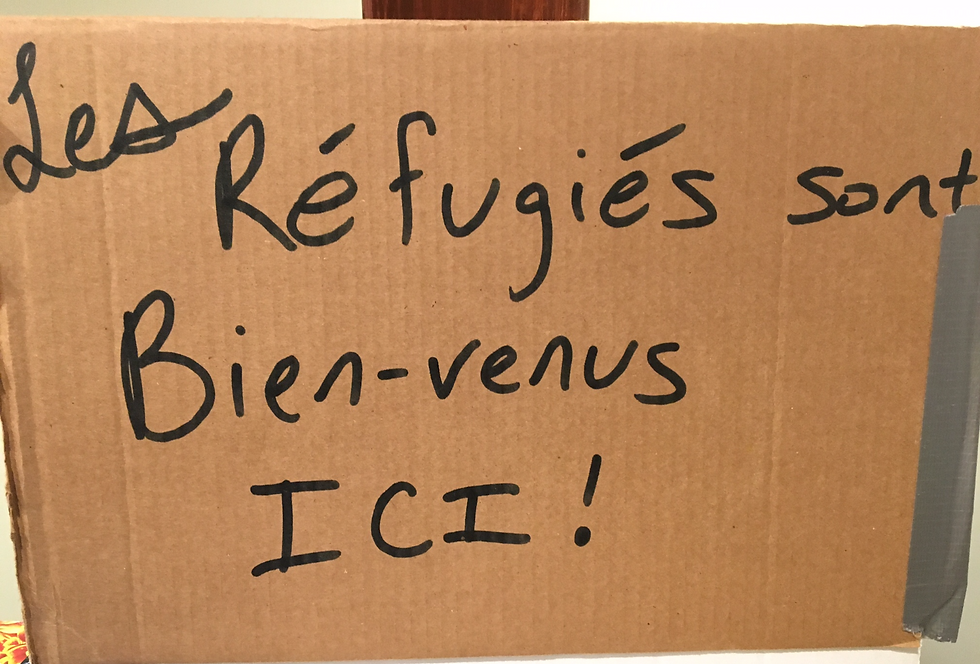 Les Réfugiés sont
Bien-venus
ICI!